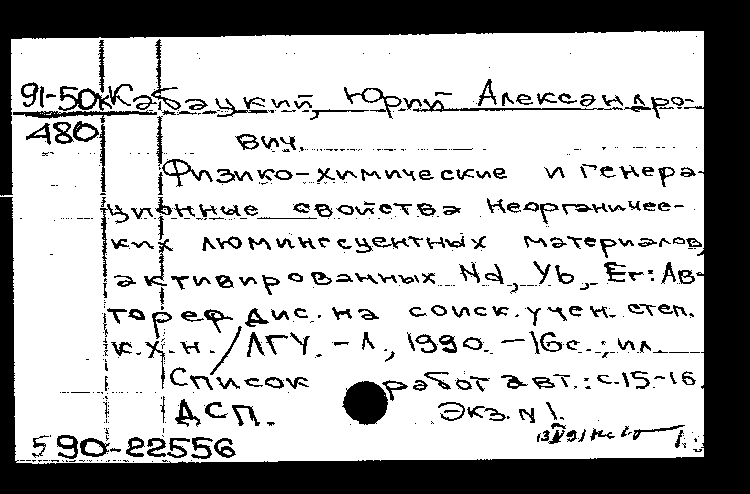 91-50к Кабацкий, Юрий Александро-
480 вич.
Физико-химические и генера-
ционные свойства неорганичес-
ких люминесцентных материалов,
активированных Nd, Yb, Er: Ав-
тореф дис. на соиск. учен. степ.
к.х.н. / ЛГУ. - Л., 1990. - 16с.; ил.
Список работ авт.: с. 15-16.
ДСП. Экз. N 1.
5 90-22556